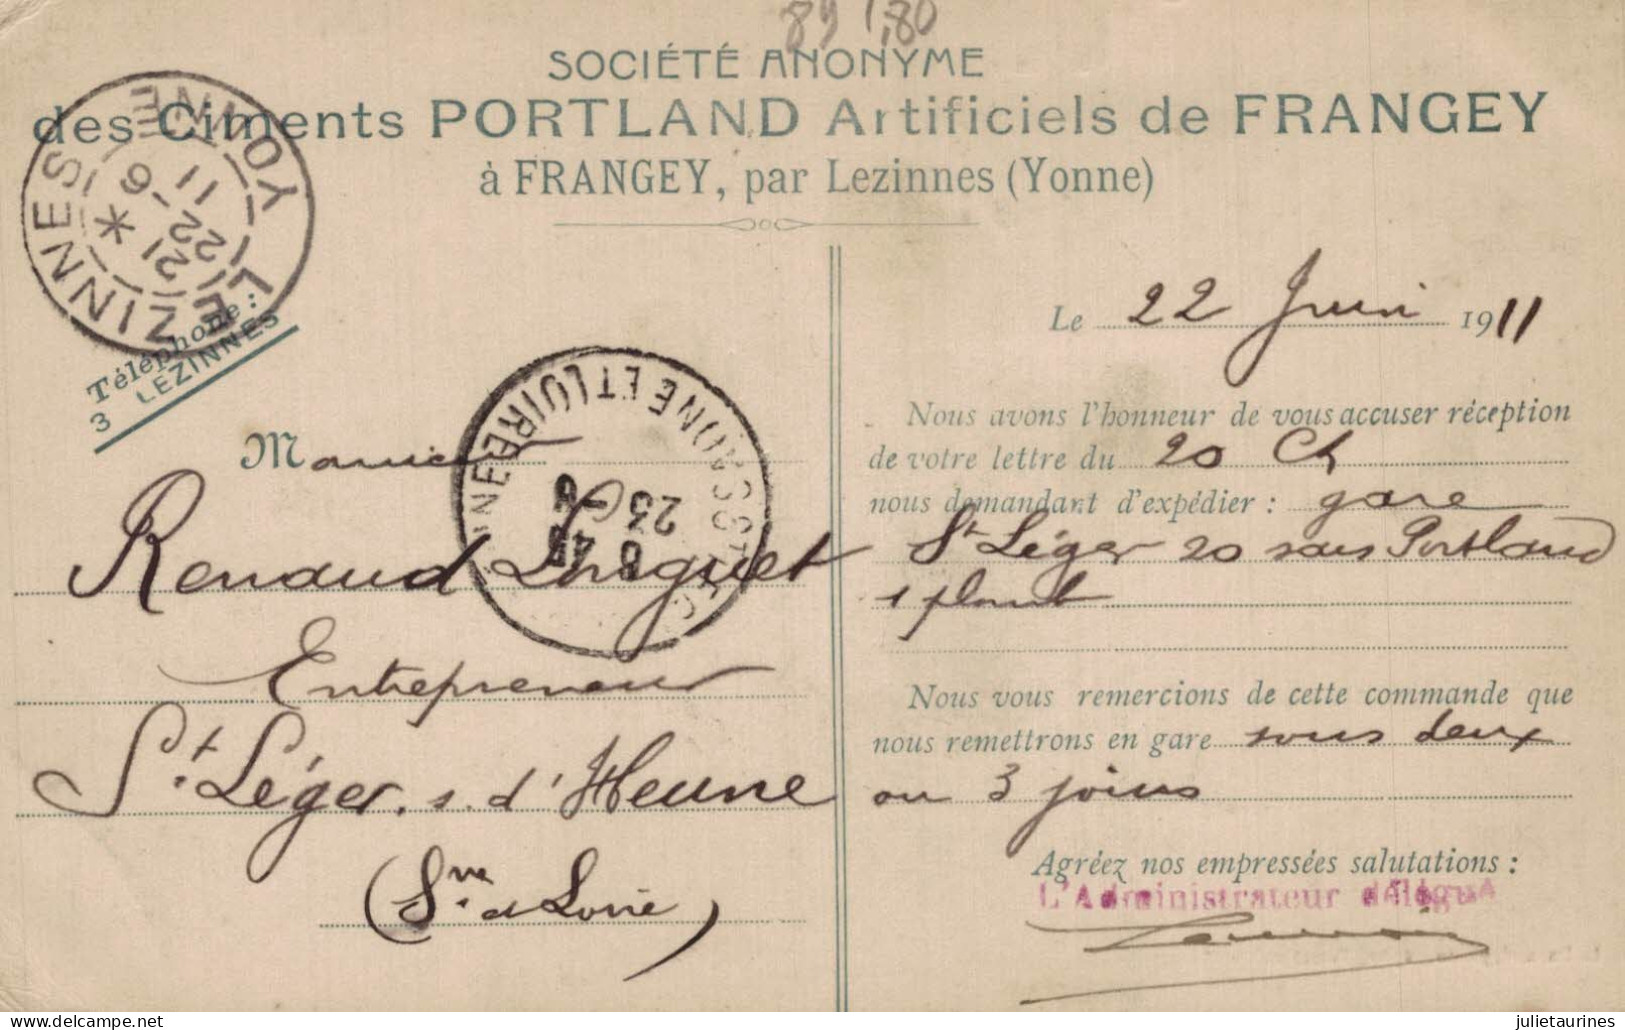 89 1,80
SOCIÉTÉ ANONYME
des Ciments PORTLAND Artificiels de FRANGEY
à FRANGEY, par Lezinnes (Yonne)
LEZINNES YONNE
21
22 - 6
11
Téléphone :
3 LEZINNES
Le 22 Juin 1911
Monsieur
Renaud
Entrepreneur
St Léger s. d'Heune
(Sne et Loire)
(SAONE ET LOIRE)
23 - 6
Nous avons l'honneur de vous accuser réception
de votre lettre du 20 Ct
nous demandant d'expédier : gare
St Léger 20 sacs Portland
1 plomb
Nous vous remercions de cette commande que
nous remettrons en gare sous deux
ou 3 jours
Agréez nos empressées salutations :
L'Administrateur délégué
delcampe.net
julietaurines